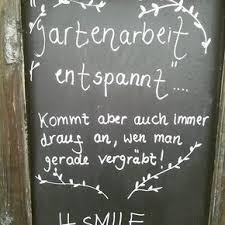 gartenarbeit
entspannt"....
Kommt aber auch immer
drauf an, wen man
gerade vergräbt!
SMILE